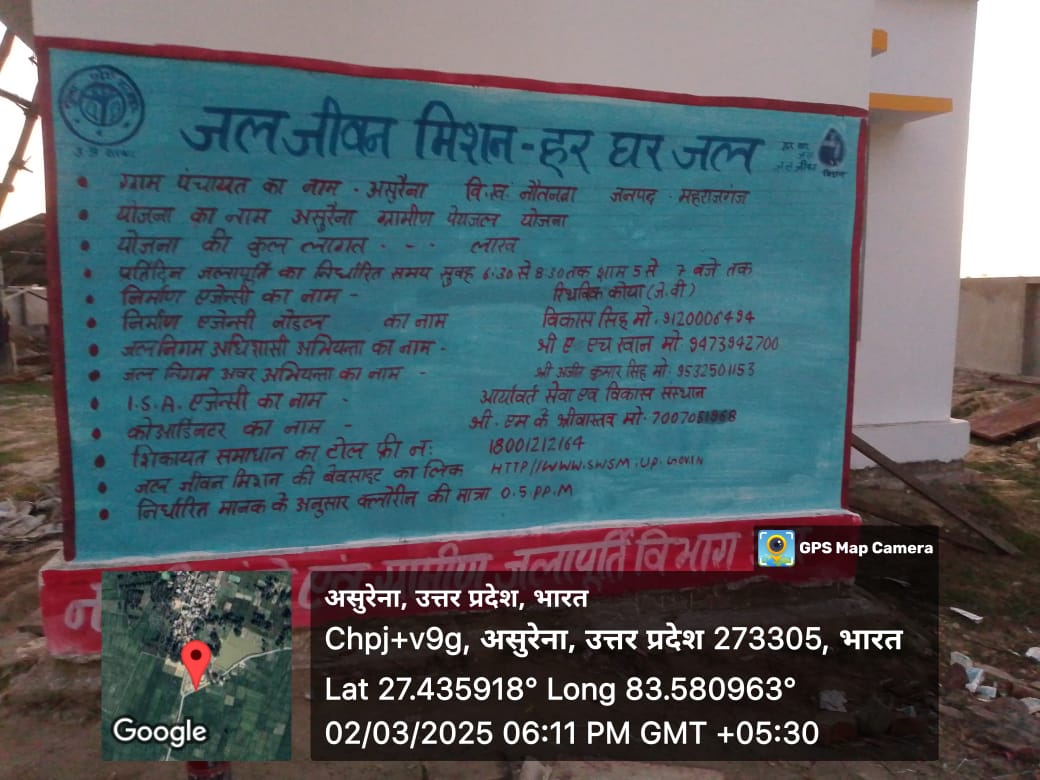 जल जीवन मिशन - हर घर जल
ग्राम पंचायत का नाम - असुरैना वि.ख. नौतनवा जनपद - महराजगंज
योजना का नाम असुरैना ग्रामीण पेयजल योजना
योजना की कुल लागत - - - लाख
प्रतिदिन जलापूर्ति का निर्धारित समय सुबह 6:30 से 8:30 तक शाम 5 से 7 बजे तक
निर्माण एजेन्सी का नाम - रिथविक कोया (जे.वी)
निर्माण एजेन्सी नोडल का नाम विकास सिंह मो. 9120006494
जल निगम अधिशासी अभियन्ता का नाम - श्री ए एच खान मो 9473942700
जल निगम अवर अभियन्ता का नाम - श्री अजीत कुमार सिंह मो. 9532501153
I.S.A. एजेन्सी का नाम - आर्यावर्त सेवा एवं विकास संस्थान
कोआर्डिनेटर का नाम - श्री. एम के श्रीवास्तव मो. 7007051968
शिकायत समाधान का टोल फ्री नं: 18001212164
जल जीवन मिशन की बेवसाइट का लिंक HTTP//WWW.SWSM.UP.GOV.IN
निर्धारित मानक के अनुसार क्लोरीन की मात्रा 0.5 PP.M
एवं ग्रामीण जलापूर्ति विभाग
GPS Map Camera
असुरेना, उत्तर प्रदेश, भारत
Chpj+v9g, असुरेना, उत्तर प्रदेश 273305, भारत
Lat 27.435918° Long 83.580963°
02/03/2025 06:11 PM GMT +05:30
Google